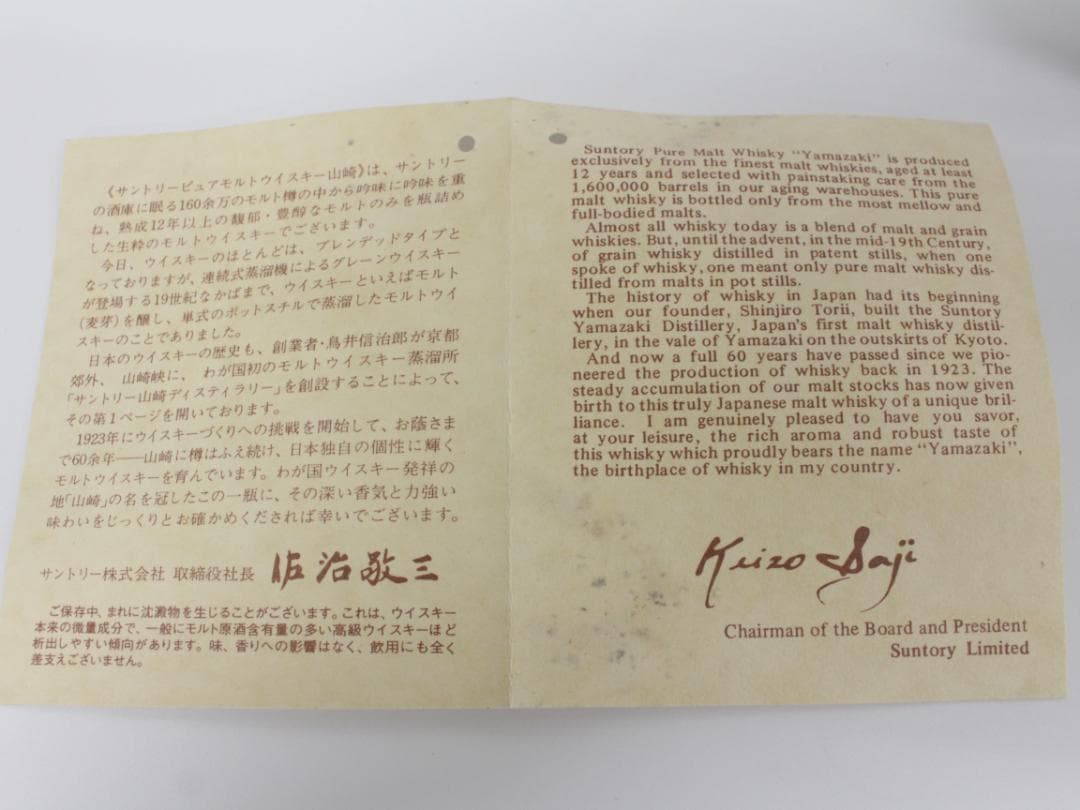 《サントリーピュアモルトウイスキー山崎》は、サントリー
の酒庫に眠る160余万のモルト樽の中から吟味に吟味を重
ね、熟成12年以上の馥郁・豊醇なモルトのみを瓶詰め
した生粋のモルトウイスキーでございます。
今日、ウイスキーのほとんどは、ブレンデッドタイプと
なっておりますが、連続式蒸溜機によるグレーンウイスキー
が登場する19世紀なかばまで、ウイスキーといえばモルト
(麦芽)を醸し、単式のポットスチルで蒸溜したモルトウイ
スキーのことでありました。
日本のウイスキーの歴史も、創業者・鳥井信治郎が京都
郊外、山崎峡に、わが国初のモルトウイスキー蒸溜所
「サントリー山崎ディスティラリー」を創設することによって、
その第1ページを開いております。
1923年にウイスキーづくりへの挑戦を開始して、お蔭さま
で60余年——山崎に樽はふえ続け、日本独自の個性に輝く
モルトウイスキーを育んでいます。わが国ウイスキー発祥の
地「山崎」の名を冠したこの一瓶に、その深い香気と力強い
味わいをじっくりとお確かめくだされば幸いでございます。
サントリー株式会社 取締役社長 佐治敬三
ご保存中、まれに沈澱物を生じることがございます。これは、ウイスキー
本来の微量成分で、一般にモルト原酒含有量の多い高級ウイスキーほど
析出しやすい傾向があります。味、香りへの影響はなく、飲用にも全く
差支えございません。
Suntory Pure Malt Whisky "Yamazaki" is produced
exclusively from the finest malt whiskies, aged at least
12 years and selected with painstaking care from the
1,600,000 barrels in our aging warehouses. This pure
malt whisky is bottled only from the most mellow and
full-bodied malts.
Almost all whisky today is a blend of malt and grain
whiskies. But, until the advent, in the mid-19th Century,
of grain whisky distilled in patent stills, when one
spoke of whisky, one meant only pure malt whisky dis-
tilled from malts in pot stills.
The history of whisky in Japan had its beginning
when our founder, Shinjiro Torii, built the Suntory
Yamazaki Distillery, Japan's first malt whisky distil-
lery, in the vale of Yamazaki on the outskirts of Kyoto.
And now a full 60 years have passed since we pio-
neered the production of whisky back in 1923. The
steady accumulation of our malt stocks has now given
birth to this truly Japanese malt whisky of a unique bril-
liance. I am genuinely pleased to have you savor,
at your leisure, the rich aroma and robust taste of
this whisky which proudly bears the name "Yamazaki",
the birthplace of whisky in my country.
Keizo Saji
Chairman of the Board and President
Suntory Limited